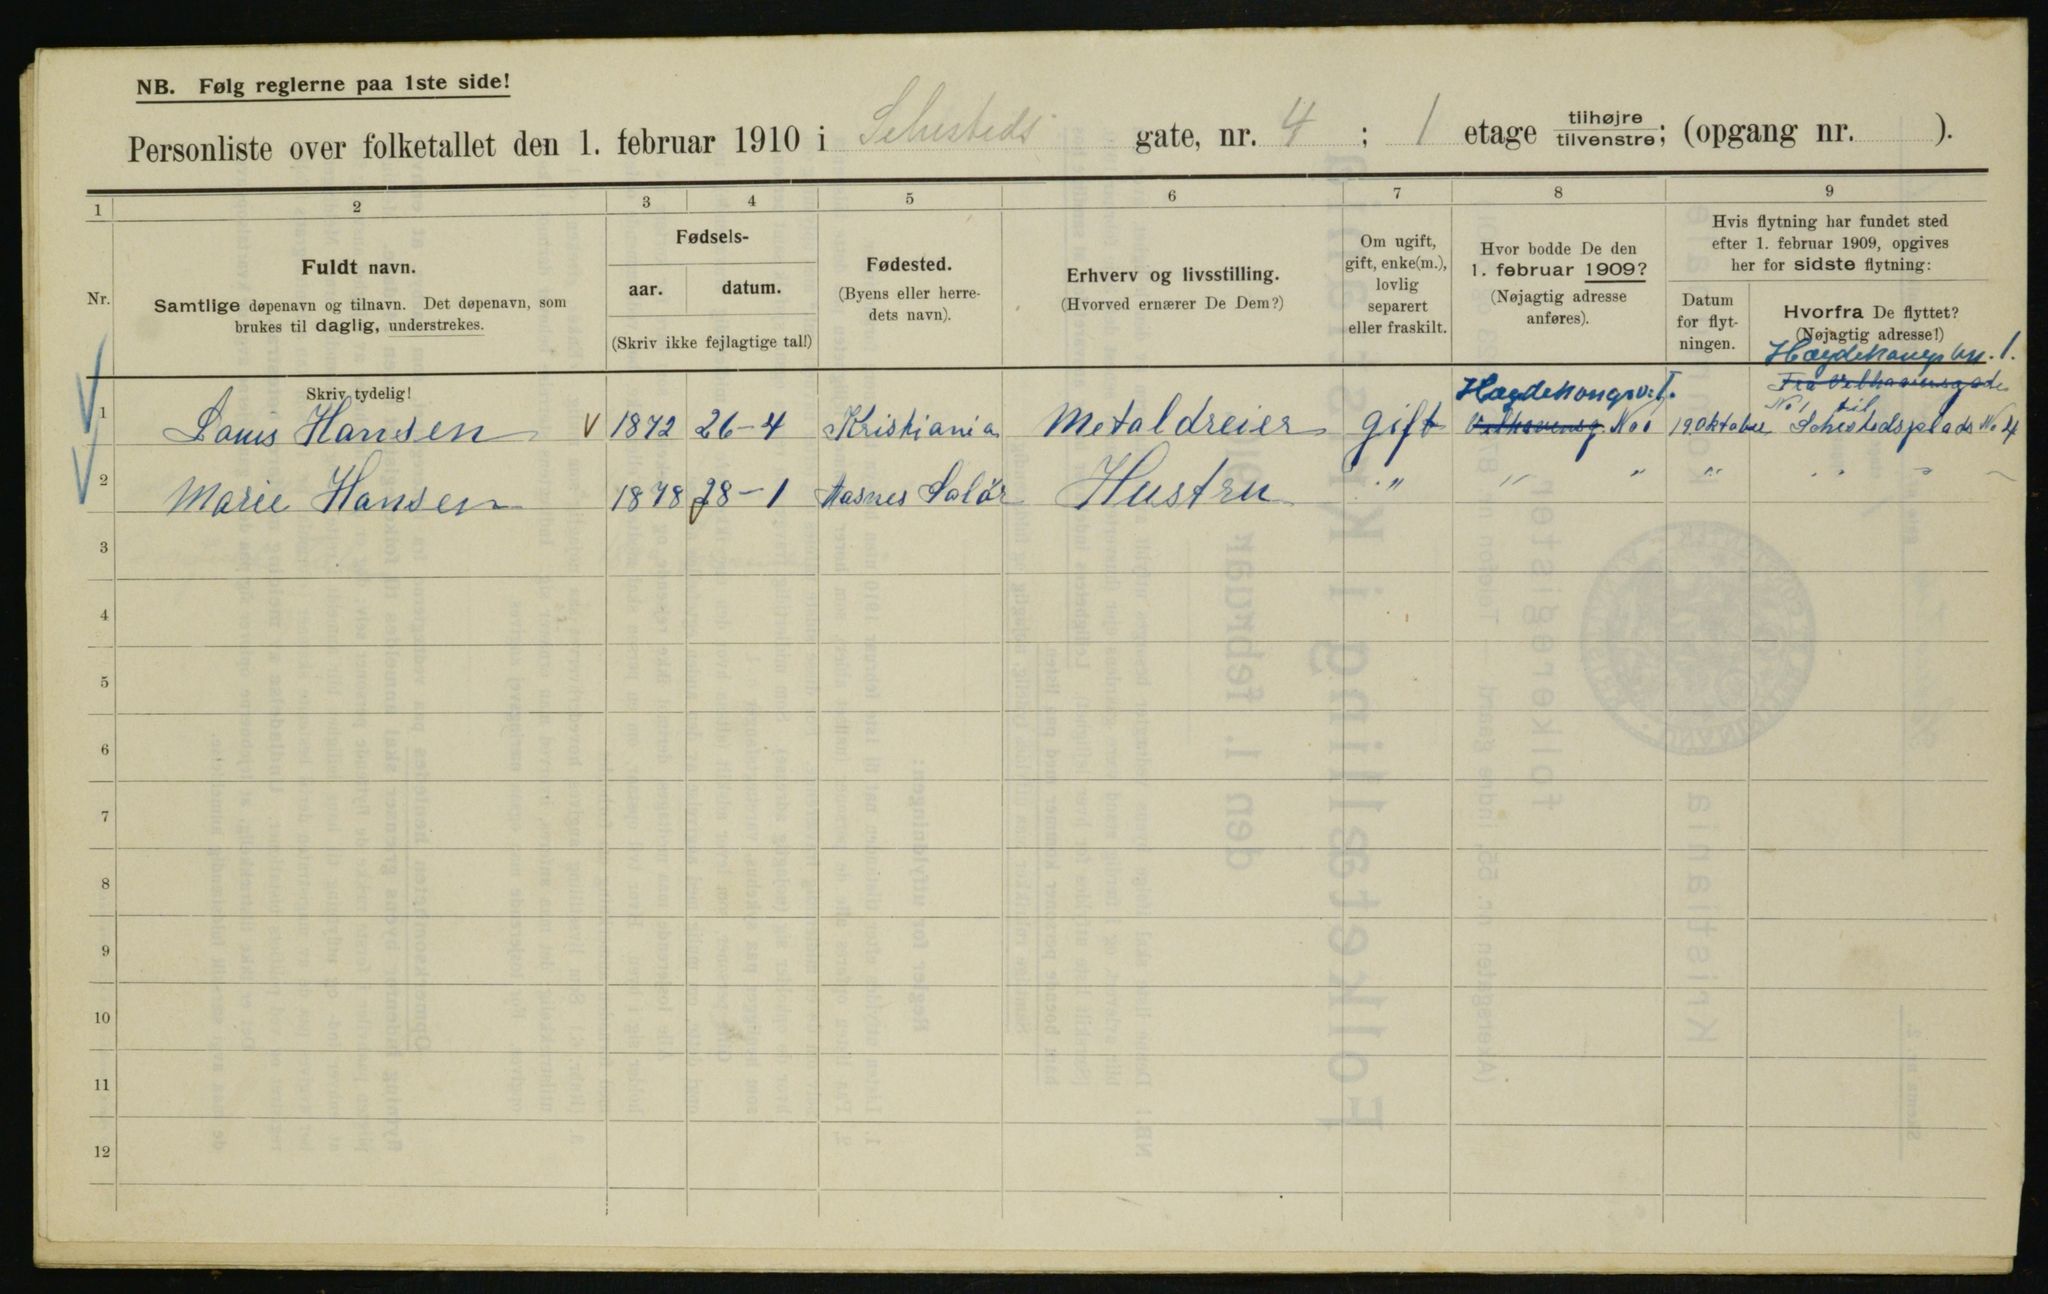 NB. Følg reglerne paa 1ste side!
Personliste over folketallet den 1. februar 1910 i Sehesteds gate, nr. 4 ; 1 etage tilhøjre tilvenstre; (opgang nr. ).
1 2 3 4 5 6 7 8 9
Nr.
Fuldt navn.
Samtlige døpenavn og tilnavn. Det døpenavn, som
brukes til daglig, understrekes.
Fødsels-
aar. datum.
(Skriv ikke fejlagtige tal!)
Fødested.
(Byens eller herre-
dets navn).
Erhverv og livsstilling.
(Hvorved ernærer De Dem?)
Om ugift,
gift, enke(m.),
lovlig
separert
eller fraskilt.
Hvor bodde De den
1. februar 1909?
(Nøjagtig adresse
anføres).
Hvis flytning har fundet sted
efter 1. februar 1909, opgives
her for sidste flytning:
Datum
for flyt-
ningen.
Hvorfra De flyttet?
(Nøjagtig adresse!)
Skriv tydelig!
Hægdehaugsv. 1.
Fra Velhavensgade
No 1 til
Hægdehougsv. 1.
1 Louis Hansen V 1872 26-4 Kristiania Metaldreier gift Velhavensg. No 1 19 Oktober Sehestedsplads No 4
2 Marie Hansen 1878 28-1 Aasnes Solör Hustru " " " " " "
3
4
5
6
7
8
9
10
11
12